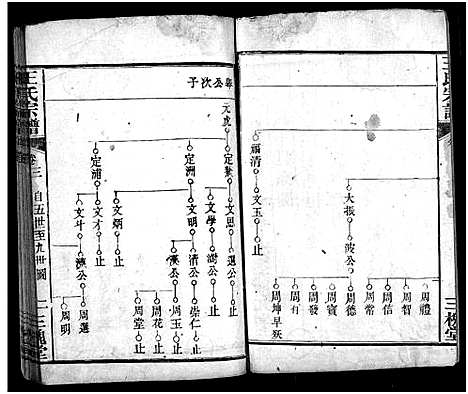 王氏宗譜
三槐堂
福清
文玉
止
大振
波公
周禮
周智
周信
周常
周德
周賓
周發
周有
周坤早殀
舉公次子
元虎
定數
文思
止
文學
澍公
止
定淵
文明
清公
崇仁
止
漢公
周玉
止
周花
止
周堂
止
文炳
止
定浦
文才
止
文斗
漢公
周選
周明
王氏宗譜
卷三
自五世至九世圖
三槐堂